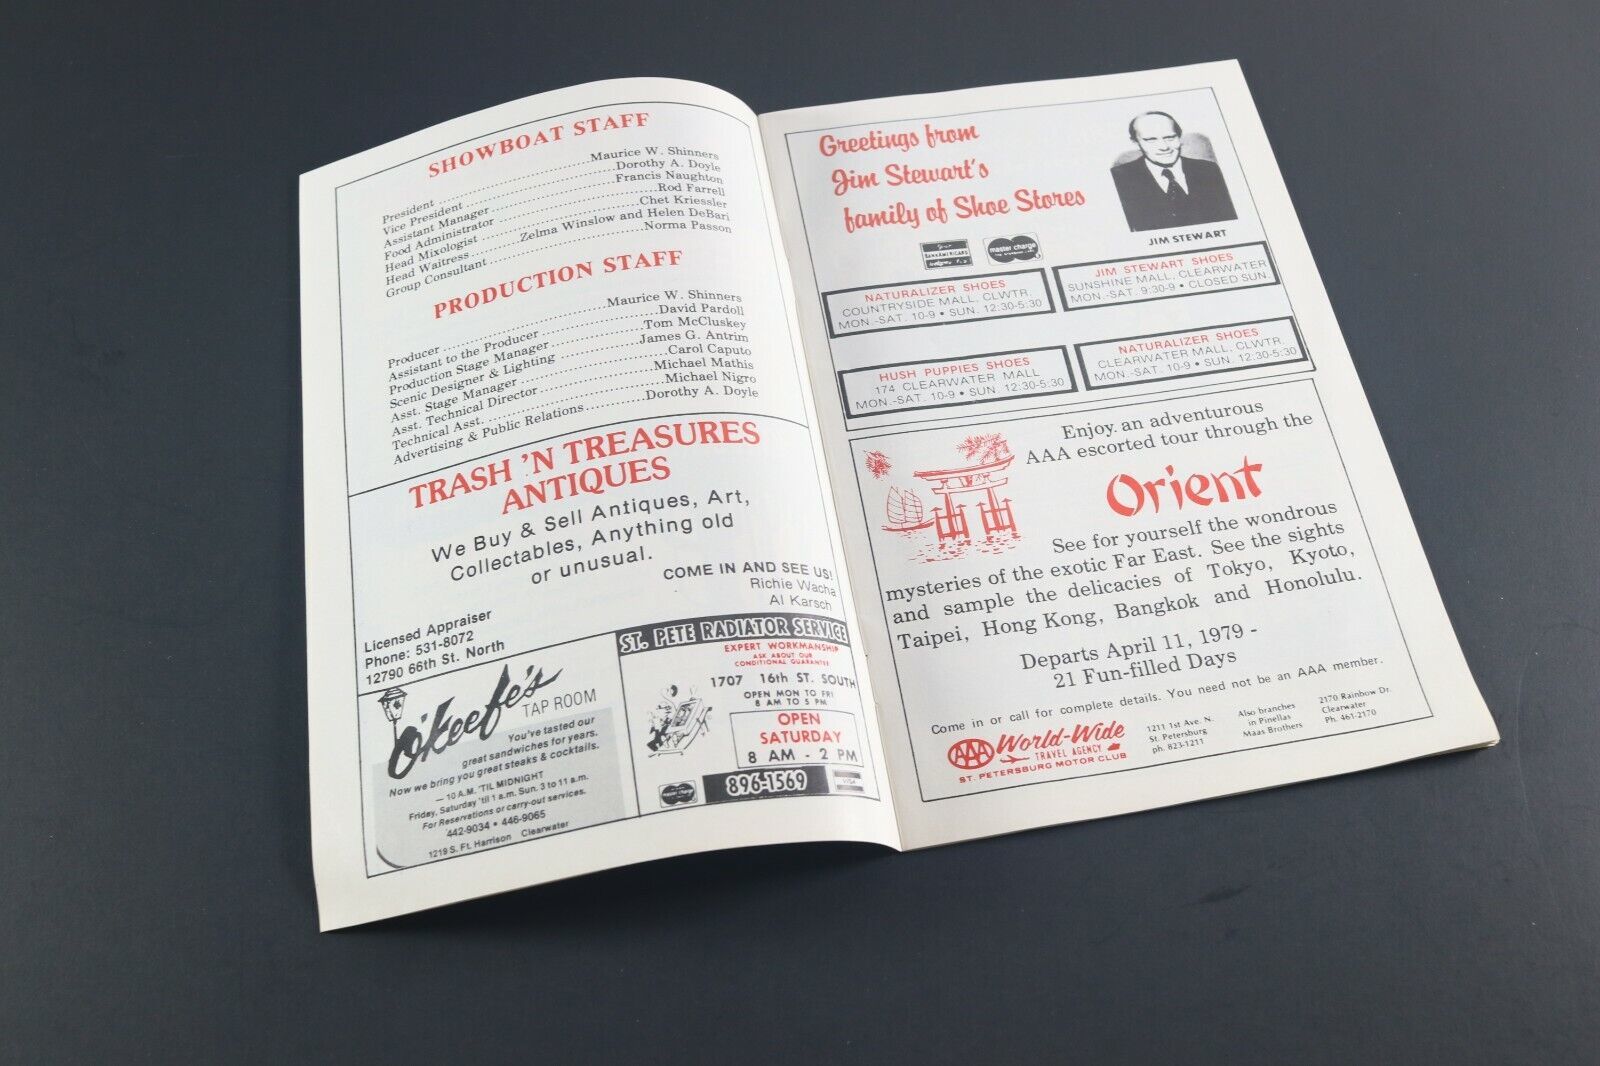 SHOWBOAT STAFF
President ........ Maurice W. Shinners
Vice President ........ Dorothy A. Doyle
Assistant Manager ........ Francis Naughton
Food Administrator ........ Rod Farrell
Head Mixologist ........ Chet Kriessler
Head Waitress ........ Zelma Winslow and Helen DeBari
Group Consultant ........ Norma Passon
PRODUCTION STAFF
Producer ........ Maurice W. Shinners
Assistant to the Producer ........ David Pardoll
Production Stage Manager ........ Tom McCluskey
Scenic Designer & Lighting ........ James G. Antrim
Asst. Stage Manager ........ Carol Caputo
Asst. Technical Director ........ Michael Mathis
Technical Asst. ........ Michael Nigro
Advertising & Public Relations ........ Dorothy A. Doyle
TRASH 'N TREASURES
ANTIQUES
We Buy & Sell Antiques, Art,
Collectables, Anything old
or unusual.
COME IN AND SEE US!
Richie Wacha
Al Karsch
Licensed Appraiser
Phone: 531-8072
12790 66th St. North
O'Keefe's
TAP ROOM
You've tasted our
great sandwiches for years.
Now we bring you great steaks & cocktails.
— 10 A.M. 'TIL MIDNIGHT
Friday, Saturday 'til 1 a.m. Sun. 3 to 11 a.m.
For Reservations or carry-out services.
442-9034 • 446-9065
1219 S. Ft. Harrison Clearwater
ST. PETE RADIATOR SERVICE
EXPERT WORKMANSHIP
ASK ABOUT OUR
CONDITIONAL GUARANTEE
1707 16th ST. SOUTH
OPEN MON TO FRI
8 AM TO 5 PM
OPEN
SATURDAY
8 AM - 2 PM
master charge
896-1569
VISA
Greetings from
Jim Stewart's
family of Shoe Stores
JIM STEWART
BANKAMERICARD
master charge
THE INTERBANK CARD
NATURALIZER SHOES
COUNTRYSIDE MALL, CLWTR.
MON.-SAT. 10-9 • SUN. 12:30-5:30
JIM STEWART SHOES
SUNSHINE MALL, CLEARWATER
MON.-SAT. 9:30-9 • CLOSED SUN.
HUSH PUPPIES SHOES
174 CLEARWATER MALL
MON.-SAT. 10-9 • SUN. 12:30-5:30
NATURALIZER SHOES
CLEARWATER MALL, CLWTR.
MON.-SAT. 10-9 • SUN. 12:30-5:30
Enjoy. an adventurous
AAA escorted tour through the
Orient
See for yourself the wondrous
mysteries of the exotic Far East. See the sights
and sample the delicacies of Tokyo, Kyoto,
Taipei, Hong Kong, Bangkok and Honolulu.
Departs April 11, 1979 -
21 Fun-filled Days
Come in or call for complete details. You need not be an AAA member.
AAA World-Wide
TRAVEL AGENCY
ST. PETERSBURG MOTOR CLUB
1211 1st Ave. N.
St. Petersburg
ph. 823-1211
Also branches
in Pinellas
Maas Brothers
2170 Rainbow Dr.
Clearwater
Ph. 461-2170